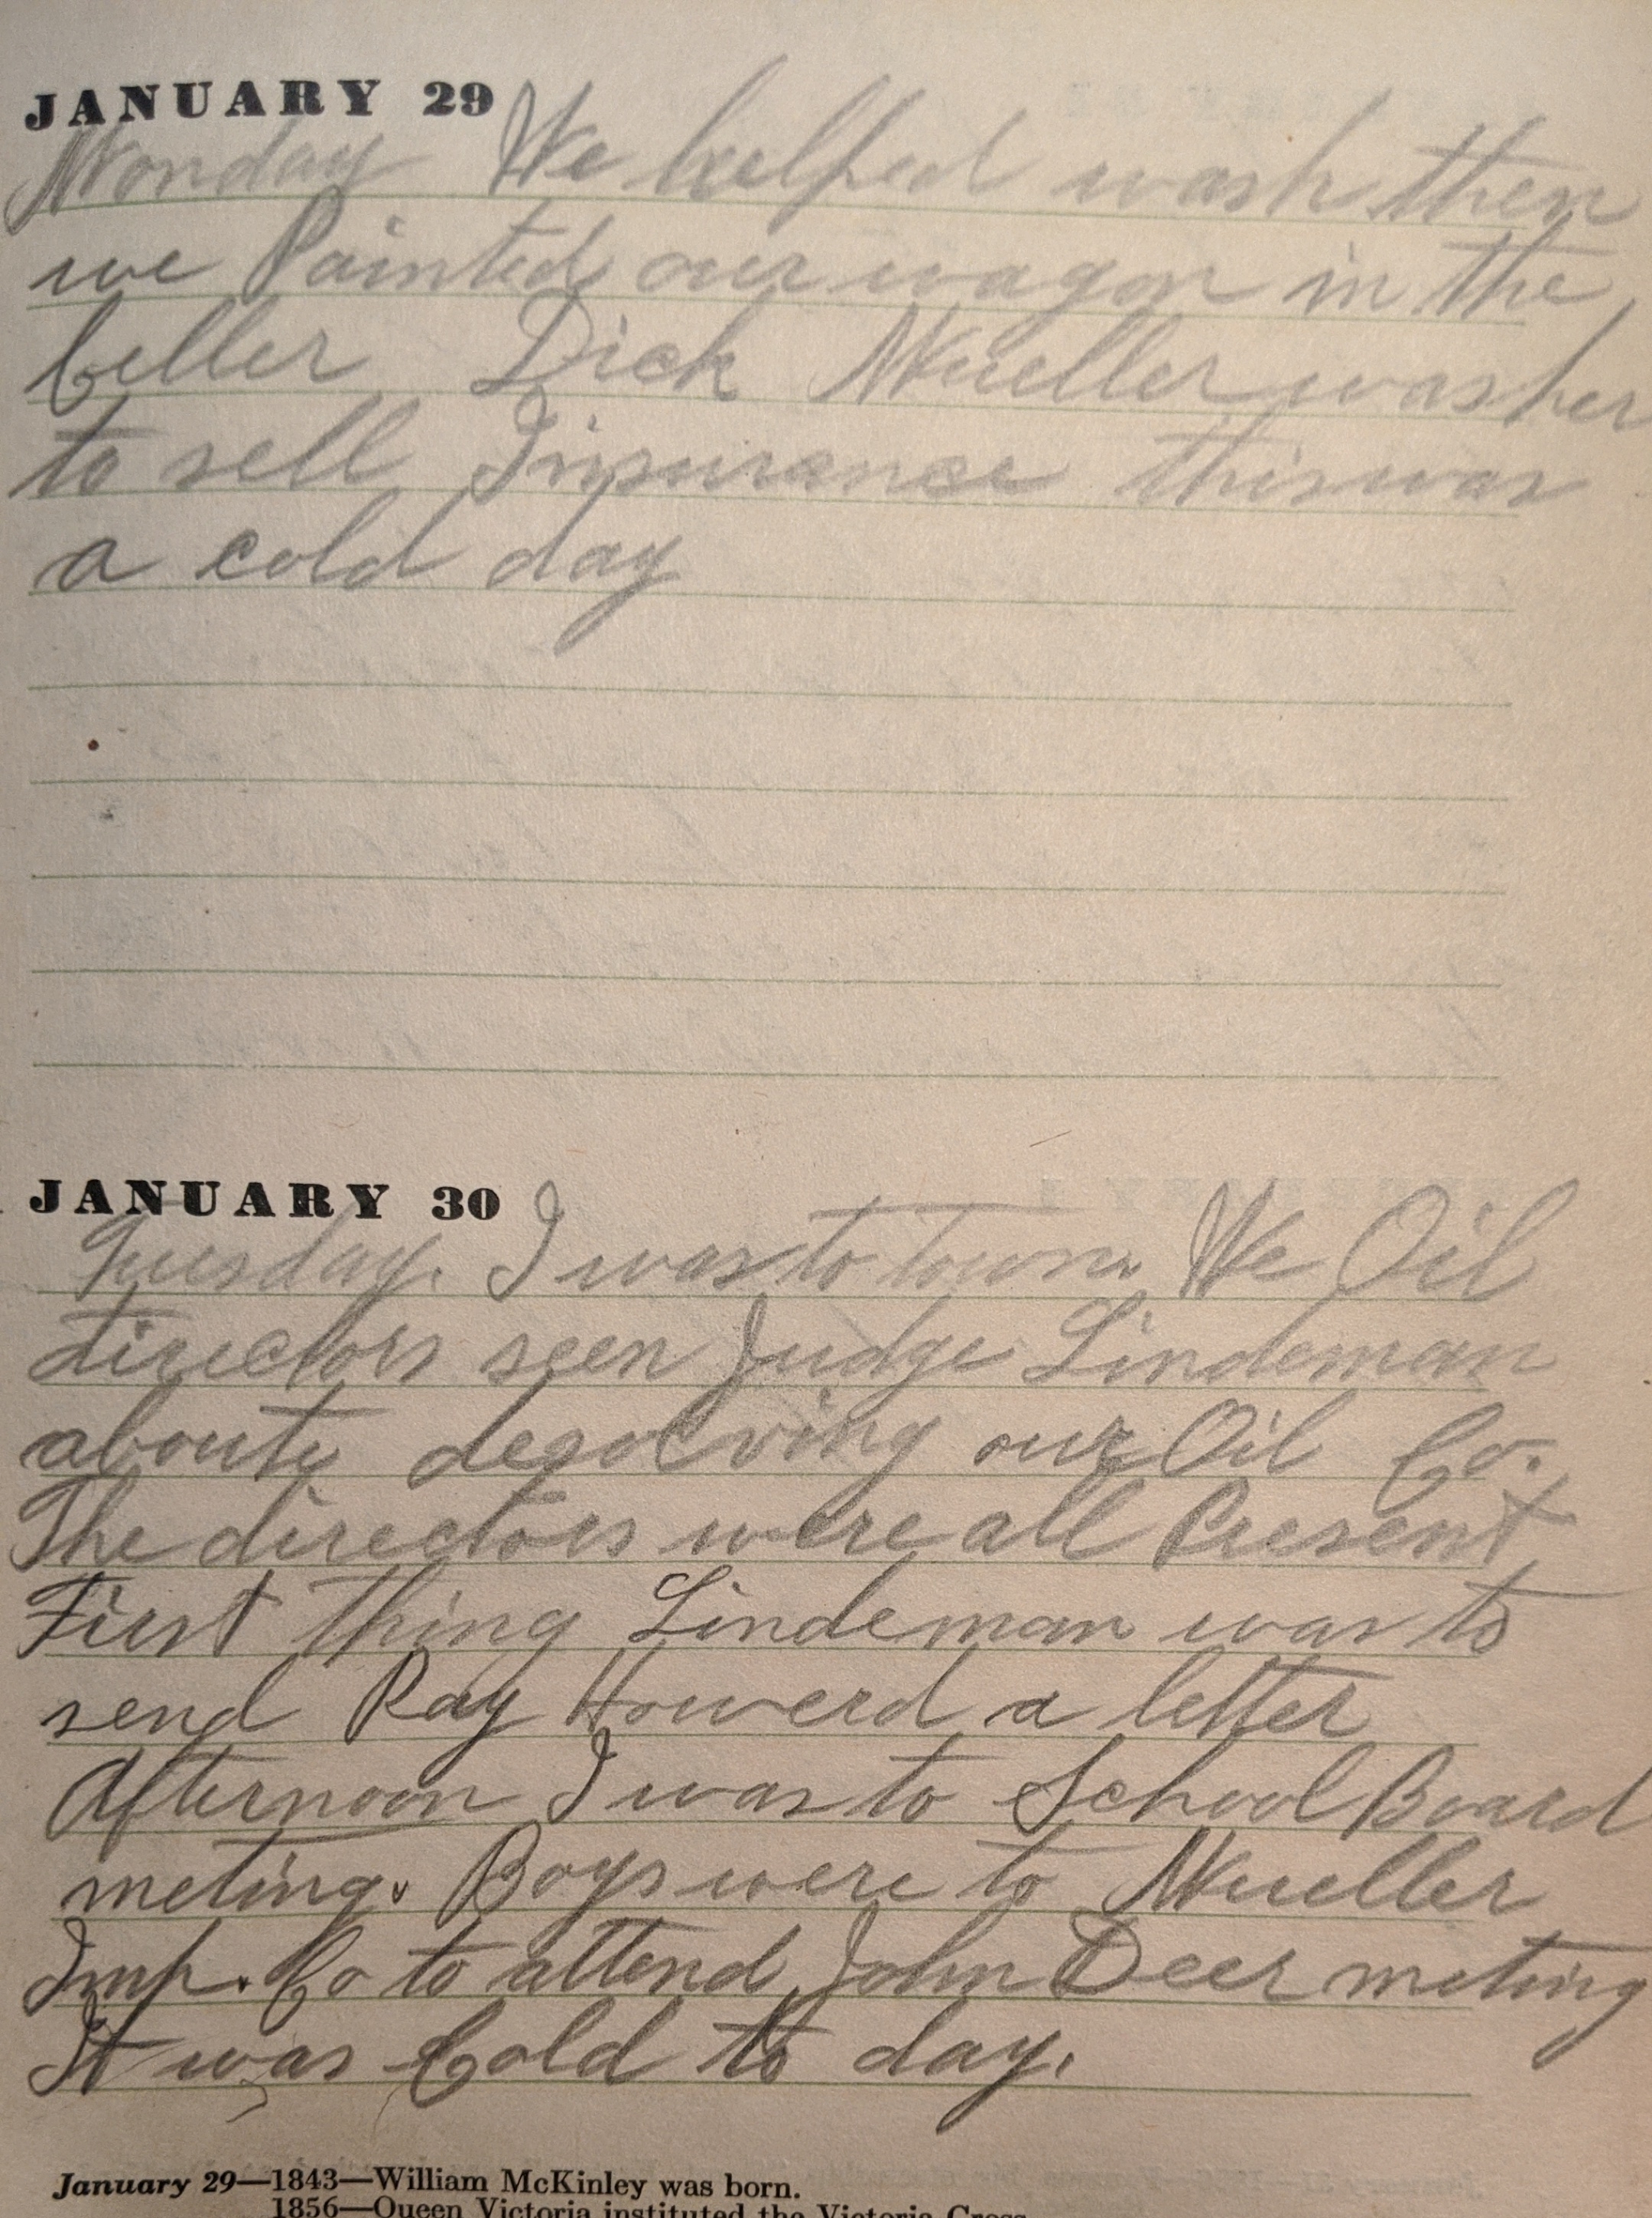 JANUARY 29
Monday We helped wash then
we Painted our wagon in the
Celler Dick Mueller was her
to sell Insurance this was
a cold day
JANUARY 30
Tuesday. I was to town. We Oil
directors seen Judge Lindeman
about desolving our Oil Co.
The directors were all Present
First thing Lindeman was to
send Ray Howerd a letter
Afternoon I was to School Board
meting. Boys were to Mueller
Imp. Co to attend John Deer meting
It was Cold to day.
January 29—1843—William McKinley was born.
1856—Queen Victoria instituted the Victoria Cross.